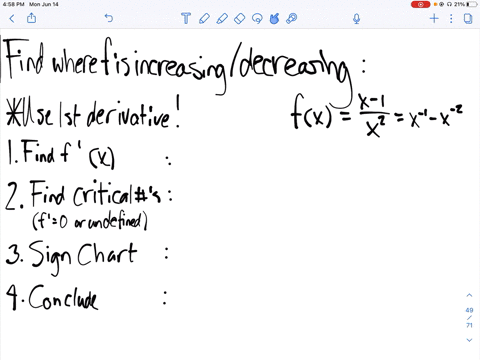 4:58 PM Mon Jun 14
21%
Find where f is increasing/decreasing :
*Use 1st derivative!
f(x) = x-1/x² = x⁻¹ - x⁻²
1. Find f'(x) :
2. Find Critical #'s :
(f'=0 or undefined)
3. Sign Chart :
4. Conclude :
49
/
71